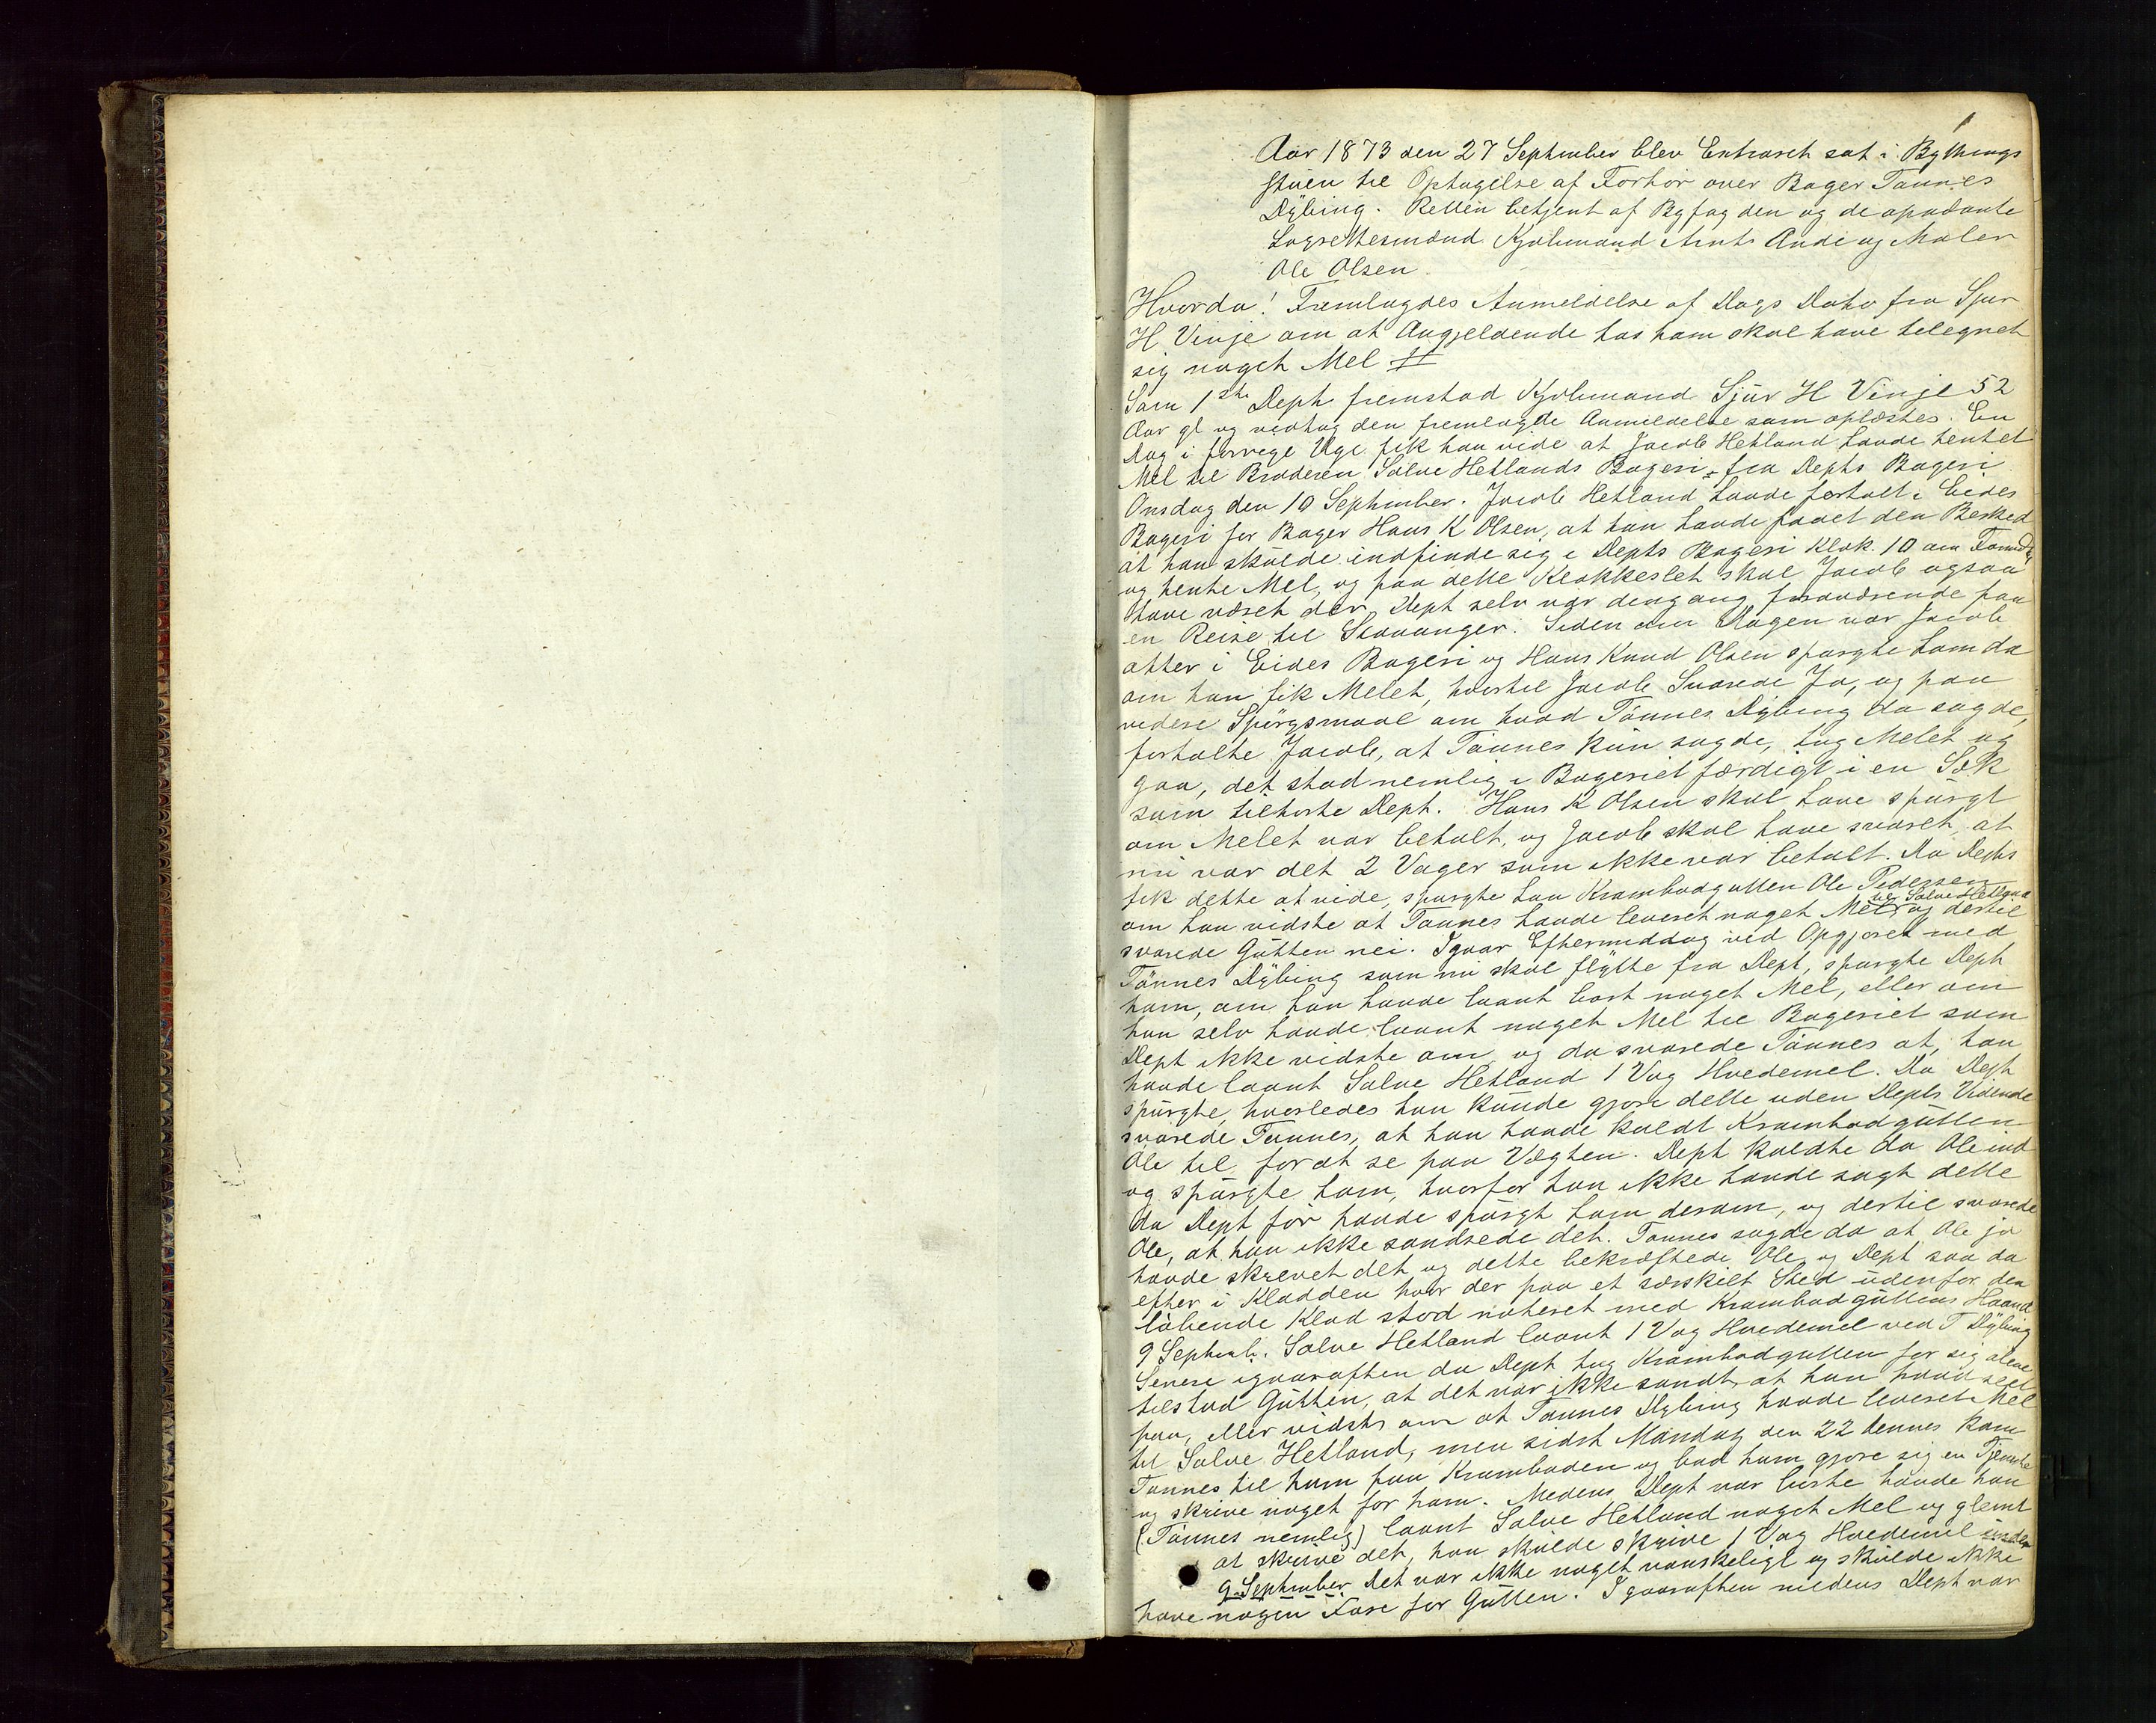 1
Aar 1873 den 27 September blev Extraret sat i Bythings
stuen til Optagelse af Forhør over Bager Tønnes
Dybing. Retten betjent af Byfogden og de opnævnte
Lagrettesmænd Kjøbmand Arnts Aude og Maler
Ole Olsen.
Hvorda! Fremlagdes Anmeldelse af Dags Dato fra Sjur
H Vinje om at Angjeldende hos ham skal have tilegnet
sig noget Mel #
Som 1ste Dept fremstod Kjøbmand Sjur H Vinje 52
Aar gl og vedtog den fremlagde Anmeldelse som oplæstes. En
Dag i forrige Uge fik han vide at Jacob Hetland havde hentet
Mel til Broderen Salve Hetlands Bageri fra Depts Bageri
Onsdag den 10 September. Jacob Hetland havde fortalt i Eides
Bageri for Bager Hans K Olsen, at han havde faaet den Besked
at han skulde indfinde sig i Depts Bageri Klok. 10 om Formdg
og hente Mel, og paa dette Klokkeslet skal Jacob ogsaa
have været der. Dept selv var dengang fraværende paa
en Reise til Stavanger. Siden om Dagen var Jacob
atter i Eides Bageri og Hans Knud Olsen spurgte ham da
om han fik Melet, hvortil Jacob Svarede Ja, og paa
videre Spørgsmaal om hvad Tønnes Dybing da sagde,
fortalte Jacob, at Tønnes kun sagde, tag Melet og
gaa, det stod nemlig i Bageriet færdigt i en Sæk
som tilhørte Dept. Hans K Olsen skal have spurgt
om Melet var betalt, og Jacob skal have svaret, at
nu var det 2 Voger som ikke var betalt. Da Depts
fik dette at vide, spurgte han Krambodgutten Ole Pedersen
om han vidste at Tønnes havde leveret noget Mel til Salve Hetland og dertil
svarede Gutten nei. Igaar Eftermiddag ved Opgjøret med
Tønnes Dybing som nu skal flytte fra Dept, spurgte Dept
ham, om han havde laant bort noget Mel, eller om
han selv havde laant noget Mel til Bageriet som
Dept ikke vidste om, og da svarede Tønnes at, han
havde laant Salve Hetland 1 Vog Hvedemel. Da Dept
spurgte, hvorledes han kunde gjøre dette uden Depts Vidende
svarede Tønnes, at han havde kaldt Krambodgutten
Ole til for at se paa Vægten. Dept kaldte da Ole ind
og spurgte ham, hvorfor han ikke havde sagt dette
da Dept før havde spurgt ham derom, og dertil svarede
Ole, at han ikke sandsede det. Tønnes sagde da at Ole jo
havde skrevet det og dette bekræftede Ole, og Dept saa da
efter i Kladden hvor der paa et særskilt Sted udenfor den
løbende Klad stod noteret med Krambodguttens Haand
9 Septemb. Salve Hetland laant 1 Vog Hvedemel ved T Dybing
Senere igaaraften da Dept tog Krambodgutten for sig alene
tilstod Gutten, at det var ikke sandt at han havde seet
paa, eller vidste om at Tønnes Dybing havde leveret Mel
til Salve Hetland, men sidst Mandag den 22 dennes kom
Tønnes til ham paa Kramboden og bad ham gjøre sig en Tjeneste
og skrive noget for ham. Medens Dept var borte havde han
(Tønnes nemlig) laant Salve Hetland noget Mel og glemt
at skrive det, han skulde skrive 1 Vog Hvedemel under
9 September. Det var ikke noget vanskeligt og skulde ikke
have nogen Fare for Gutten. Igaaraften medens Dept var